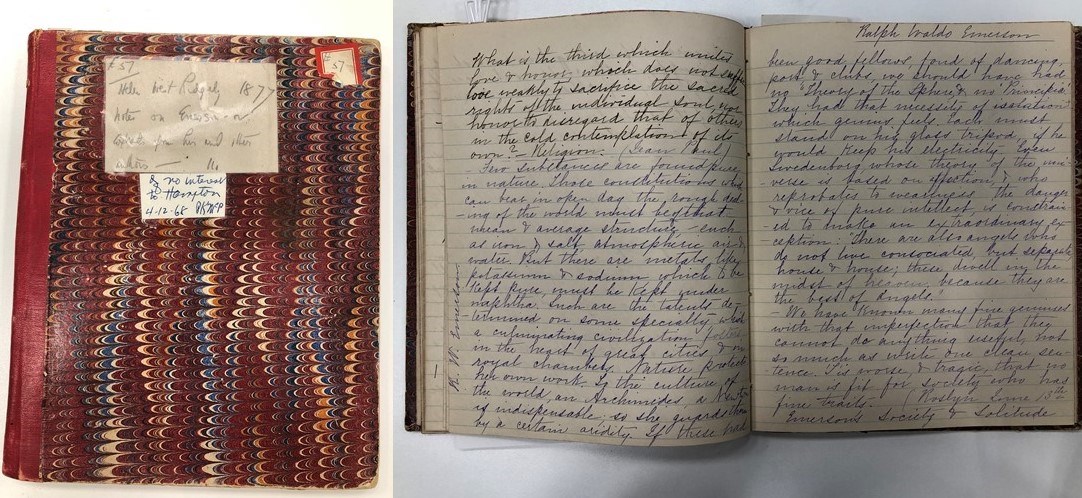 £57
Helen West Ridgely 1877
Notes on Emerson or
copied for her and other
matters —
57
of no interest
to Hampton
4-12-68
What is the third which unites
love & honor, which does not suffer
love weakly to sacrifice the sacred
rights of the individual soul, nor
honor to disregard that of others
in the cold contemplation of its
own? — Religion. (Jean Paul)
Few substances are found pure
in nature. Those constitutions which
can bear in open day the rough deal-
-ing of the world must be of that
mean & average structure — such
as iron & salt, atmospheric air &
water. But there are metals, like
potassium & sodium, which to be
kept pure, must be kept under
naphtha. Such are the talents de-
termined on some specialty, which
a culminating civilization fosters
in the heart of great cities & in
royal chambers. Nature protects
her own work. To the culture of
the world, an Archimedes, a Newton
is indispensable; so she guards them
by a certain aridity. If these had
R. W. Emerson
Ralph Waldo Emerson
been good fellows, fond of dancing,
port & clubs, we should have had
no "Theory of the Sphere" & no "Principia".
They had that necessity of isolation
which genius feels. Each must
stand on his glass tripod, if he
would keep his electricity. Even
Swedenborg whose theory of the uni-
-verse is based on affection, & who
reprobates to weariness the danger
& vice of pure intellect, is constrain-
-ed to make an extraordinary ex-
-ception: "There are also angels who
do not live consociated, but separate,
house & house; these dwell in the
midst of heaven, because they are
the best of angels."
- We have known many fine geniuses
with that imperfection that they
cannot do anything useful, not
so much as write one clean sen-
tence. 'Tis worse, & tragic, that no
man is fit for society who has
fine traits. (Roslyn June 13th
Emerson's Society & Solitude